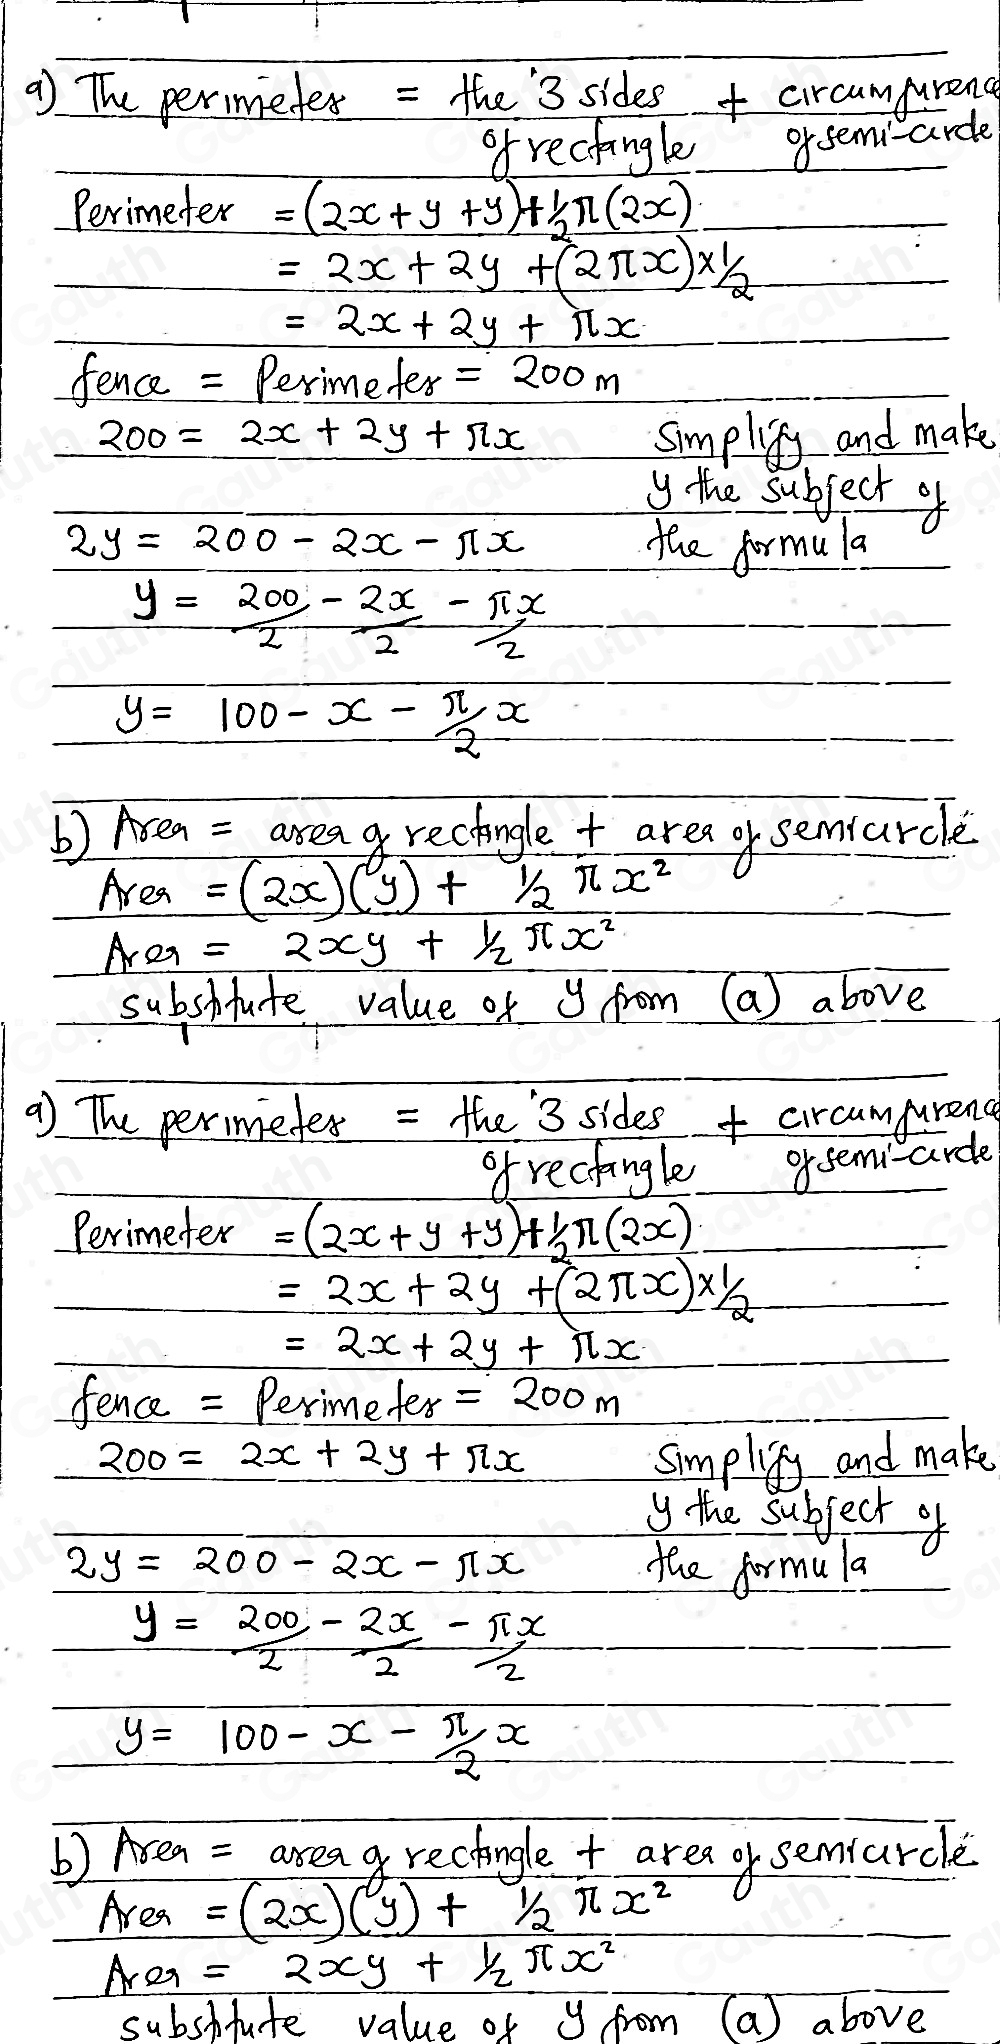 a) The perimeter = the 3 sides + circumfurence
of rectangle of semi-circle
Perimeter = (2x + y + y) + 1/2 π(2x)
= 2x + 2y + (2πx) × 1/2
= 2x + 2y + πx
fence = Perimeter = 200 m
200 = 2x + 2y + πx Simplify and make
y the subject of
2y = 200 - 2x - πx the formula
y = 200/2 - 2x/2 - πx/2
y = 100 - x - π/2 x
b) Area = area of rectangle + area of semicircle
Area = (2x)(y) + 1/2 πx²
Area = 2xy + 1/2 πx²
substitute value of y from (a) above
a) The perimeter = the 3 sides + circumfurence
of rectangle of semi-circle
Perimeter = (2x + y + y) + 1/2 π(2x)
= 2x + 2y + (2πx) × 1/2
= 2x + 2y + πx
fence = Perimeter = 200 m
200 = 2x + 2y + πx Simplify and make
y the subject of
2y = 200 - 2x - πx the formula
y = 200/2 - 2x/2 - πx/2
y = 100 - x - π/2 x
b) Area = area of rectangle + area of semicircle
Area = (2x)(y) + 1/2 πx²
Area = 2xy + 1/2 πx²
substitute value of y from (a) above